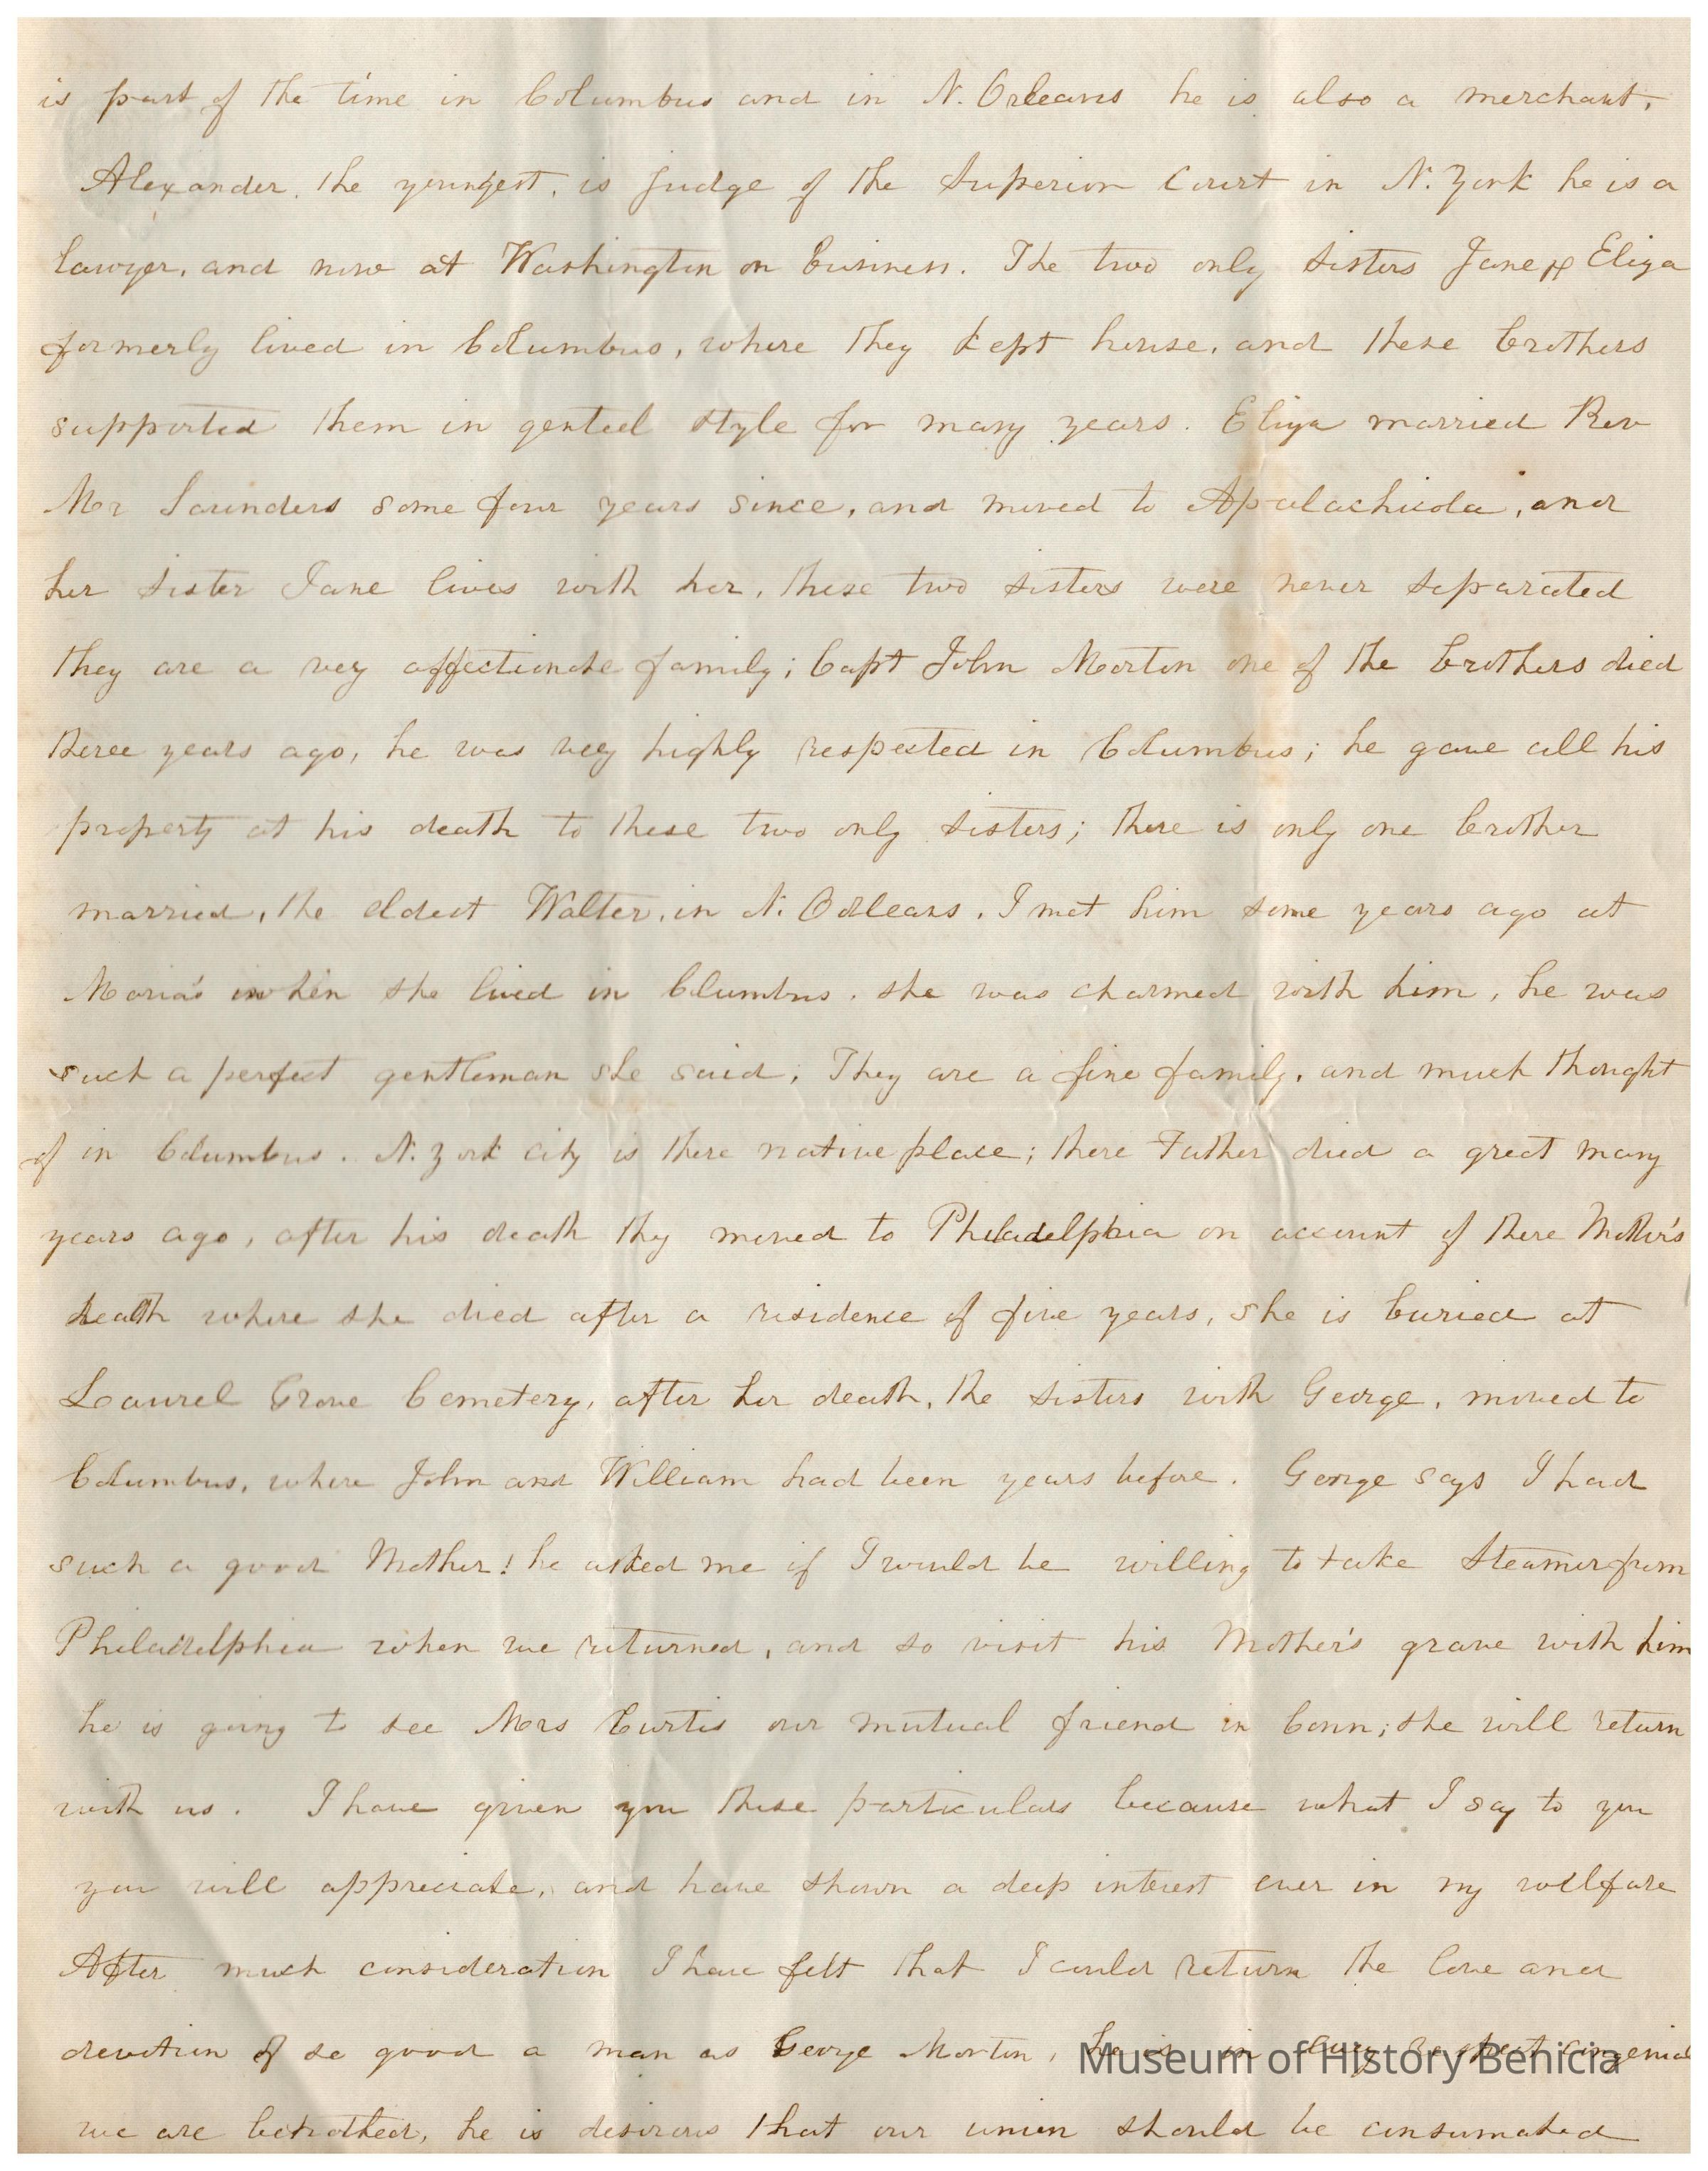 is part of the time in Columbus and in N. Orleans he is also a merchant,
Alexander, the youngest, is judge of the Superior Court in N. York he is a
lawyer, and now at Washington on business. The two only sisters Jane & Eliza
formerly lived in Columbus, where they kept house, and these brothers
supported them in genteel style for many years. Eliza married Rev
Mr Saunders some four years since, and moved to Apalachicola, and
her sister Jane lives with her, these two sisters were never separated
they are a very affectionate family; Capt John Morton one of the brothers died
three years ago, he was very highly respected in Columbus; he gave all his
property at his death to these two only sisters; there is only one brother
married, the eldest Walter, in N. Orleans. I met him some years ago at
Maria's when she lived in Columbus. she was charmed with him, he was
such a perfect gentleman she said; They are a fine family, and much thought
of in Columbus. N. York city is there native place; there Father died a great many
years ago, after his death they moved to Philadelphia on account of there Mother's
health where she died after a residence of five years, she is buried at
Laurel Grove Cemetery, after her death, the sisters with George, moved to
Columbus, where John and William had been years before. George says I had
such a good Mother! he asked me if I would be willing to take Steamer from
Philadelphia when we returned, and so visit his Mother's grave with him
he is going to see Mrs Curtis our mutual friend in Conn; she will return
with us. I have given you these particulars because what I say to you
you will appreciate, and have shown a deep interest ever in my wellfare
After much consideration I have felt that I could return the love and
devotion of so good a man as George Morton, he is in every respect congenial
we are betrothed, he is desirous that our union should be consumated
Museum of History Benicia